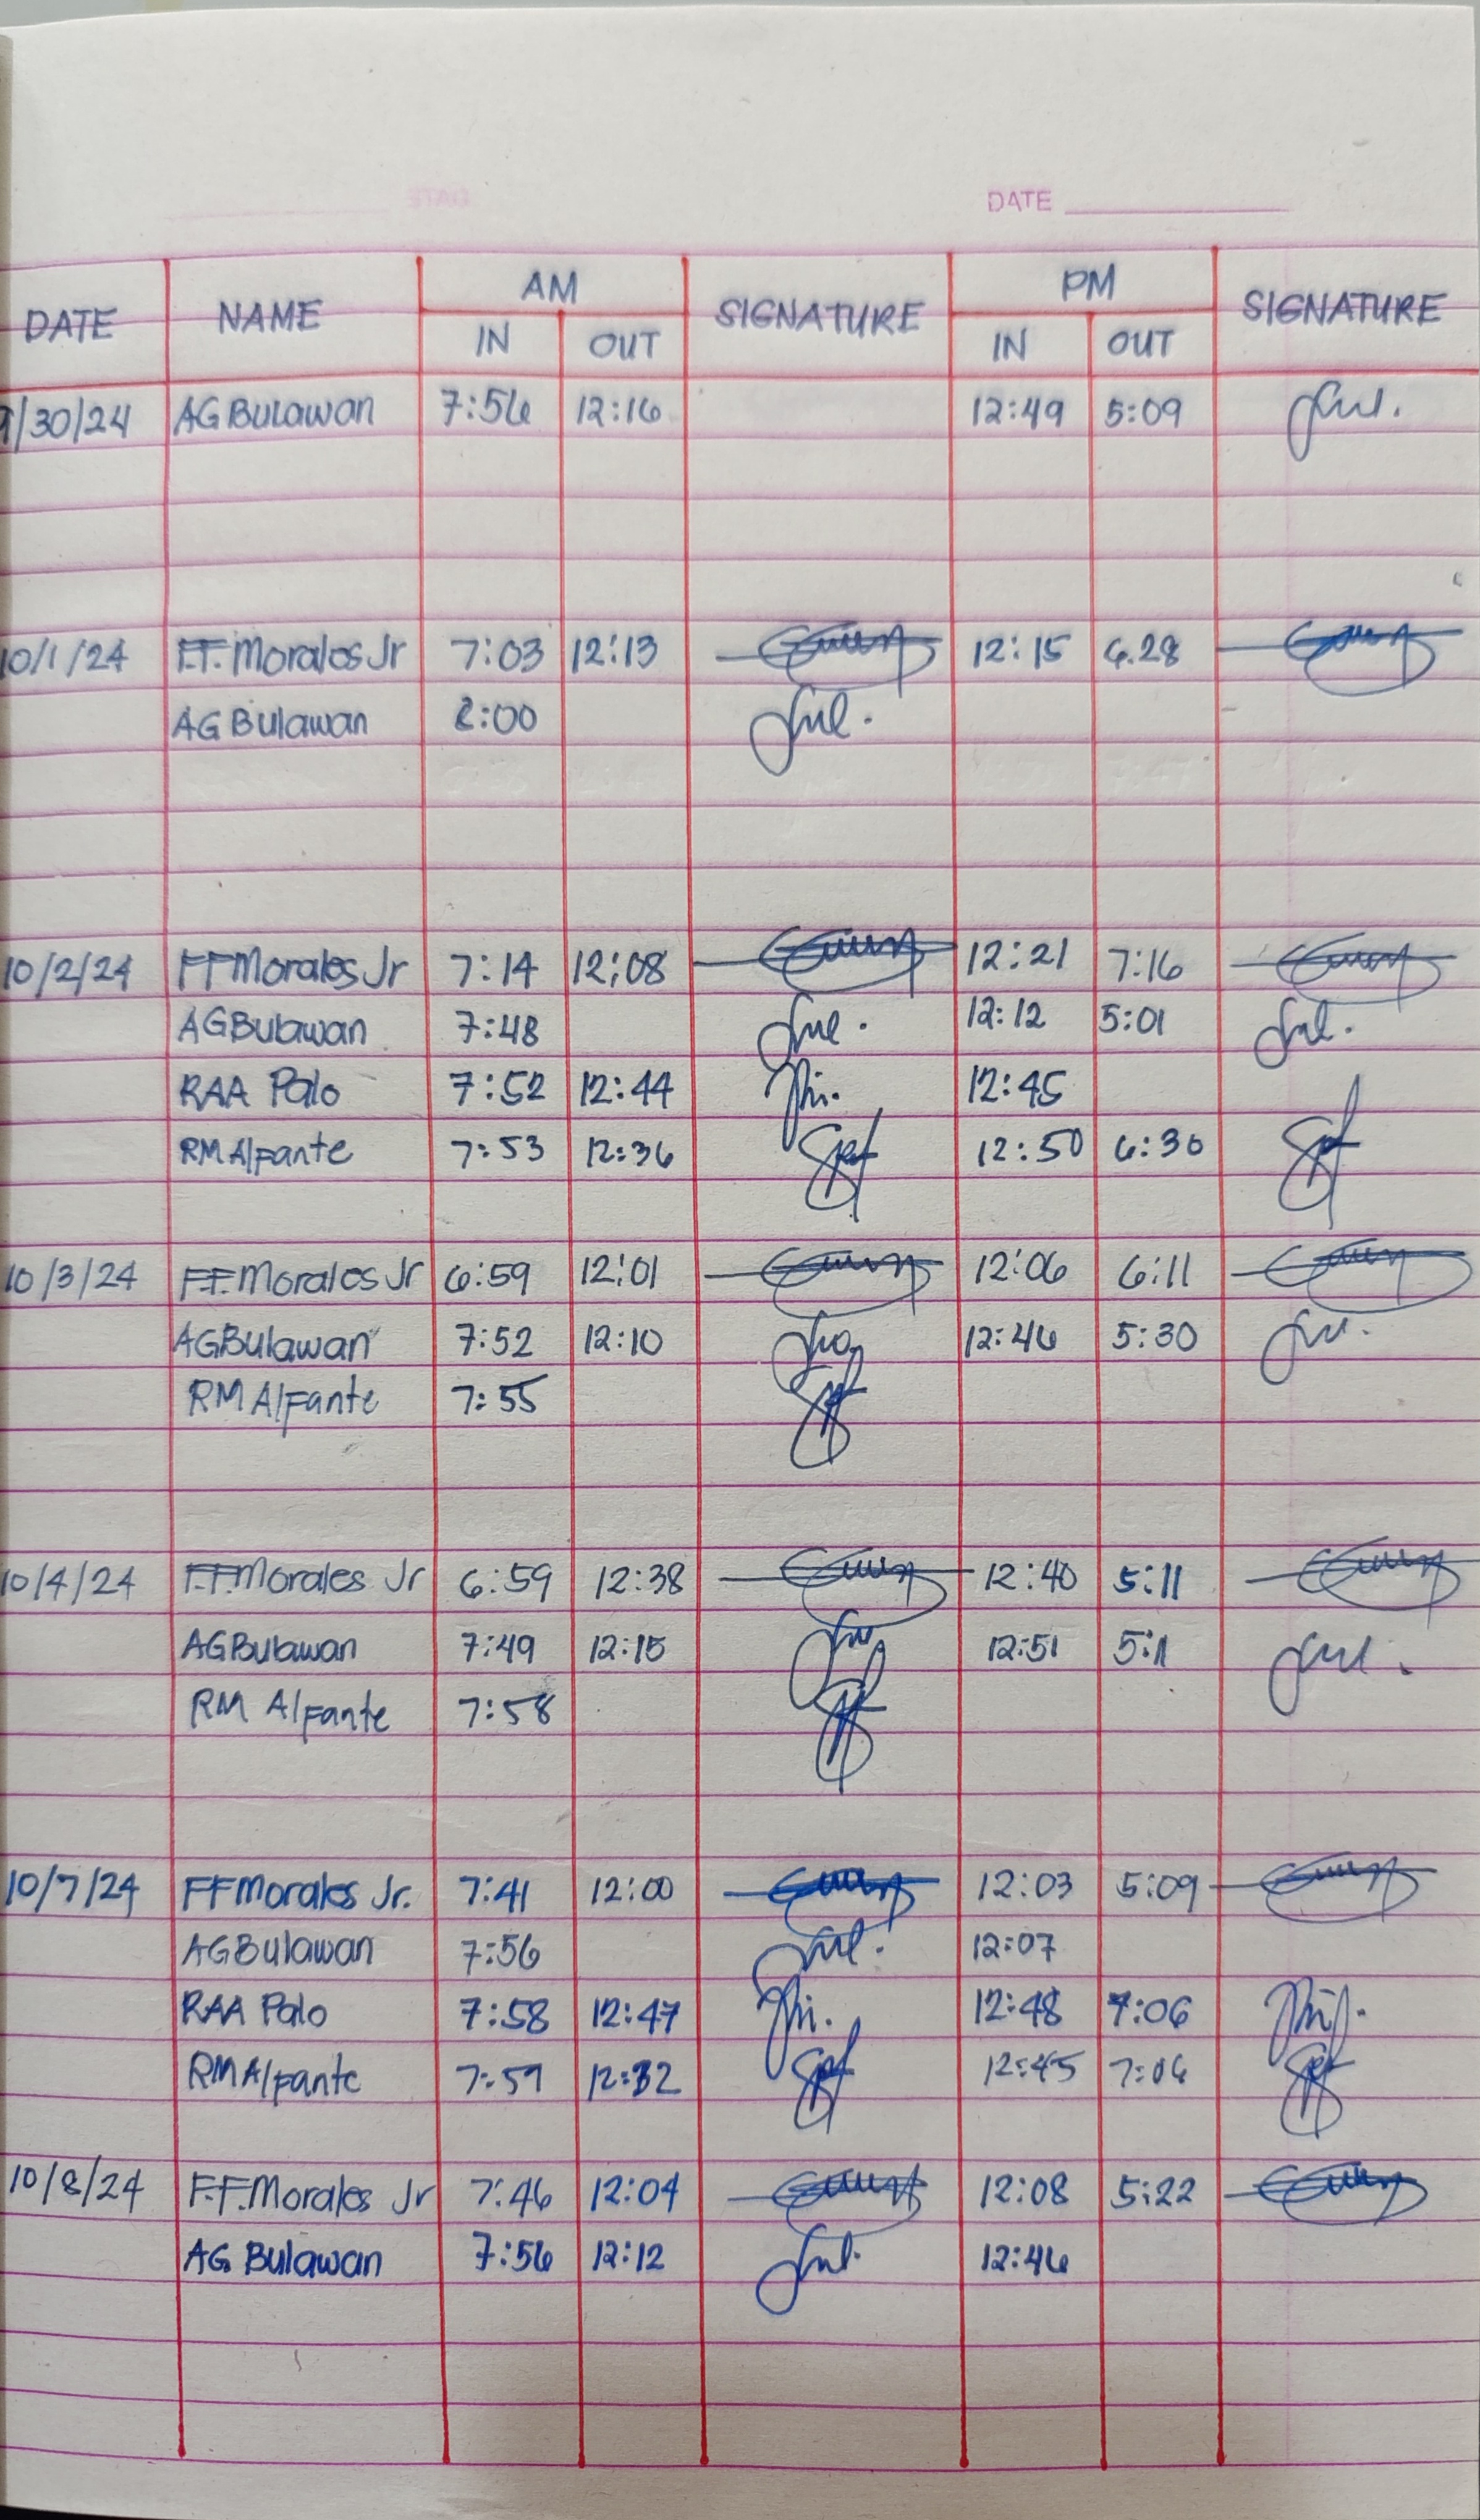 DATE
AM PM
DATE NAME SIGNATURE SIGNATURE
IN OUT IN OUT
9/30/24 AG Bulawan 7:56 12:16 12:49 5:09
10/1/24 F.F. Morales Jr 7:03 12:13 12:15 6.28
AG Bulawan 8:00
10/2/24 FF Morales Jr 7:14 12:08 12:21 7:16
AG Bulawan 7:48 12:12 5:01
RAA Palo 7:52 12:44 12:45
RM Alfante 7:53 12:36 12:50 6:30
10/3/24 F.F. Morales Jr 6:59 12:01 12:06 6:11
AG Bulawan 7:52 12:10 12:46 5:30
RM Alfante 7:55
10/4/24 F.F. Morales Jr 6:59 12:38 12:40 5:11
AG Bulawan 7:49 12:15 12:51 5:11
RM Alfante 7:58
10/7/24 FF Morales Jr. 7:41 12:00 12:03 5:09
AG Bulawan 7:56 12:07
RAA Palo 7:58 12:47 12:48 7:06
RM Alfante 7:59 12:32 12:45 7:06
10/8/24 F.F. Morales Jr 7:46 12:04 12:08 5:22
AG Bulawan 7:56 12:12 12:46